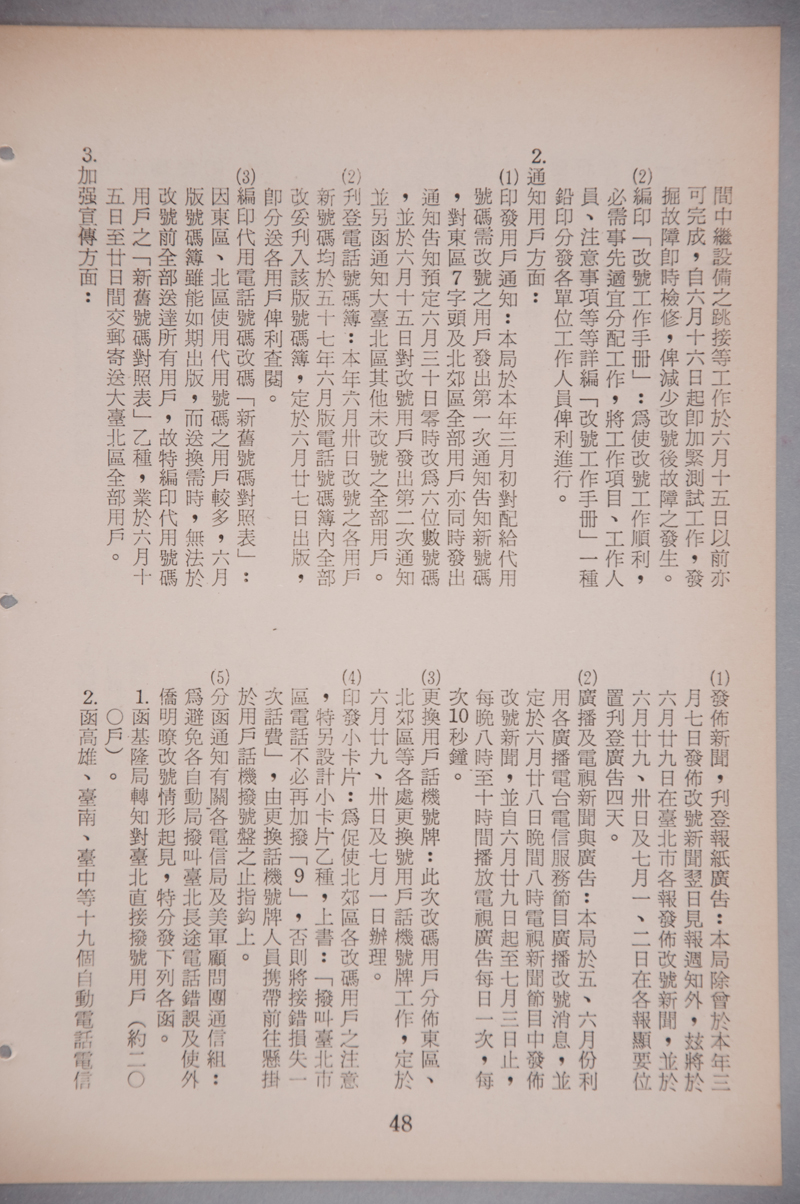 間中繼設備之跳接等工作於六月十五日以前亦
可完成，自六月十六日起卽加緊測試工作，發
掘故障卽時檢修，俾減少改號後故障之發生。
(2)編印「改號工作手册」：爲使改號工作順利，
必需事先適宜分配工作，將工作項目、工作人
員、注意事項等等詳編「改號工作手册」一種
鉛印分發各單位工作人員俾利進行。
2.通知用戶方面：
(1)印發用戶通知：本局於本年三月初對配給代用
號碼需改號之用戶發出第一次通知告知新號碼
，對東區7字頭及北郊區全部用戶亦同時發出
通知告知預定六月三十日零時改爲六位數號碼
，並於六月十五日對改號用戶發出第二次通知
並另函通知大臺北區其他未改號之全部用戶。
(2)刋登電話號碼簿：本年六月卅日改號之各用戶
新號碼均於五十七年六月版電話號碼簿內全部
改妥刋入該版號碼簿，定於六月廿七日出版，
卽分送各用戶俾利查閱。
(3)編印代用電話號碼改碼「新舊號碼對照表」：
因東區、北區使用代用號碼之用戶較多，六月
版號碼簿雖能如期出版，而送換需時，無法於
改號前全部送達所有用戶，故特編印代用號碼
用戶之「新舊號碼對照表」乙種，業於六月十
五日至廿日間交郵寄送大臺北區全部用戶。
3.加强宣傳方面：
(1)發佈新聞，刋登報紙廣告：本局除曾於本年三
月七日發佈改號新聞翌日見報週知外，玆將於
六月廿九日在臺北市各報發佈改號新聞，並於
六月廿九、卅日及七月一、二日在各報顯要位
置刋登廣告四天。
(2)廣播及電視新聞與廣告：本局於五、六月份利
用各廣播電台電信服務節目廣播改號消息，並
定於六月廿八日晚間八時電視新聞節目中發佈
改號新聞，並自六月廿九日起至七月三日止，
每晚八時至十時間播放電視廣告每日一次，每
次10秒鐘。
(3)更換用戶話機號牌：此次改碼用戶分佈東區、
北郊區等各處更換號用戶話機號牌工作，定於
六月廿九、卅日及七月一日辦理。
(4)印發小卡片：爲促使北郊區各改碼用戶之注意
，特另設計小卡片乙種，上書：「撥叫臺北市
區電話不必再加撥「9」，否則將接錯損失一
次話費」，由更換話機號牌人員携帶前往懸掛
於用戶話機撥號盤之止指鈎上。
(5)分函通知有關各電信局及美軍顧問團通信組：
爲避免各自動局撥叫臺北長途電話錯誤及使外
僑明暸改號情形起見，特分發下列各函。
1.函基隆局轉知對臺北直接撥號用戶（約二〇
〇戶）。
2.函高雄、臺南、臺中等十九個自動電話電信
48